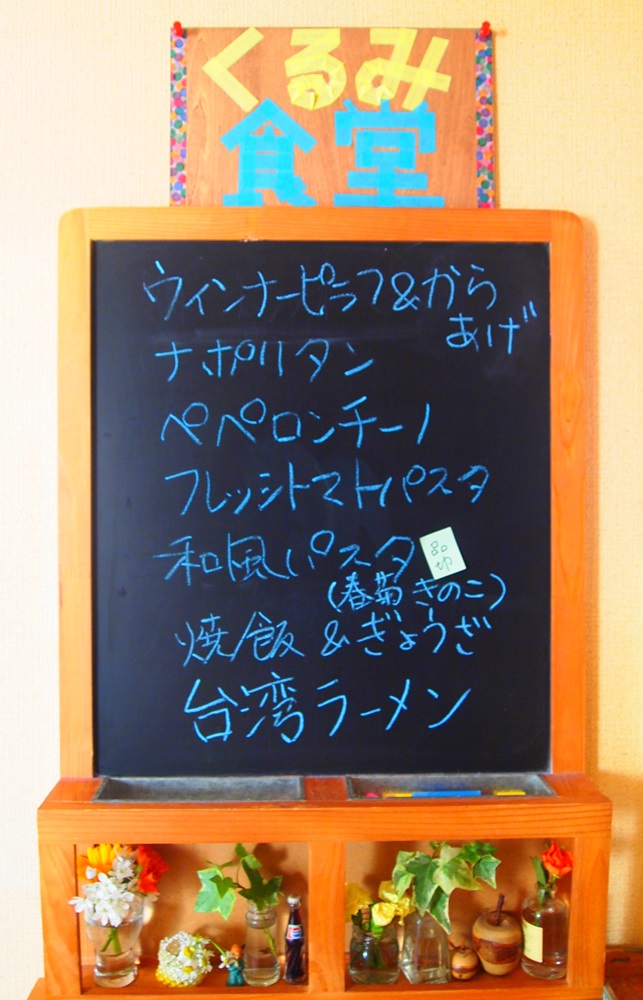 くるみ
食堂
ウインナーピラフ&から
あげ
ナポリタン
ペペロンチーノ
フレッシトマトパスタ
和風パスタ
品
切
(春菊 きのこ)
焼飯 &ぎょうざ
台湾ラーメン